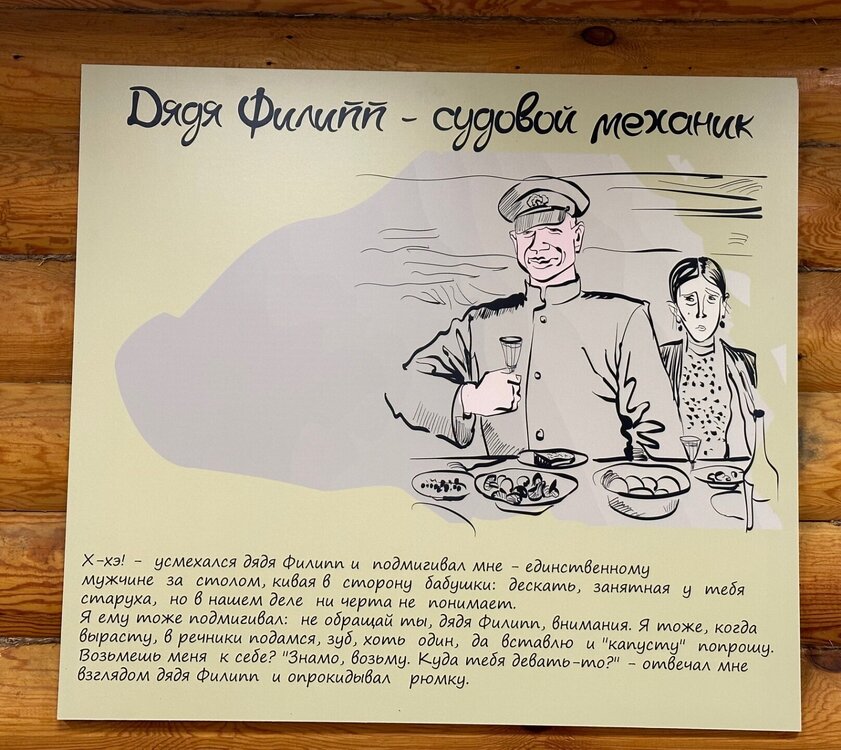 Дядя Филипп - судовой механик
Х-хэ! - усмехался дядя Филипп и подмигивал мне - единственному
мужчине за столом, кивая в сторону бабушки: дескать, занятная у тебя
старуха, но в нашем деле ни черта не понимает.
Я ему тоже подмигивал: не обращай ты, дядя Филипп, внимания. Я тоже, когда
вырасту, в речники подамся, зуб, хоть один, да вставлю и "капусту" попрошу.
Возьмешь меня к себе? "Знамо, возьму. Куда тебя девать-то?" - отвечал мне
взглядом дядя Филипп и опрокидывал рюмку.